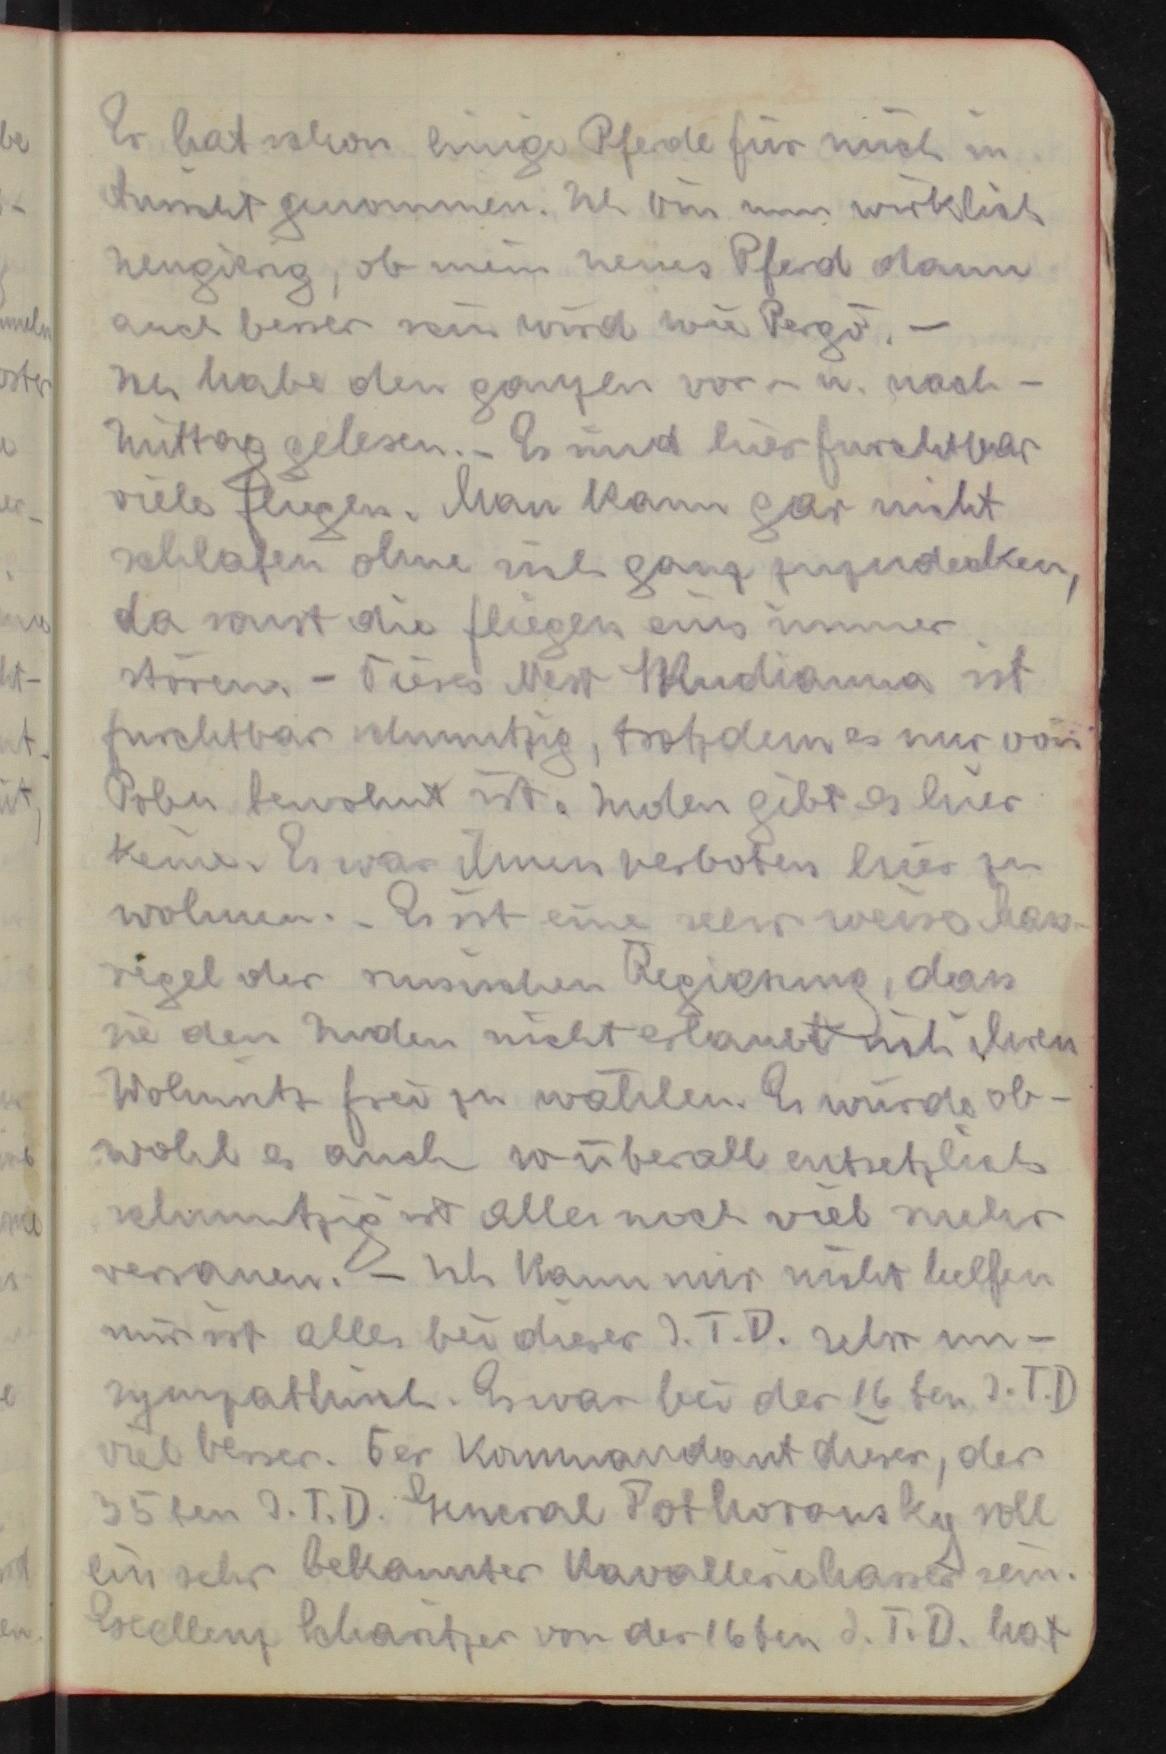 Er hat schon einige Pferde für mich in
Aussicht genommen. Ich bin nun wirklich
neugierig, ob mein neues Pferd dann
auch besser sein wird wie Pergö. –
Ich habe den ganzen vor- u. nach-
mittag gelesen. – Es sind hier furchtbar
viele Fliegen. Man kann gar nicht
schlafen ohne sich ganz zuzudecken,
da sonst die Fliegen eins immer
stören. – Dieses Nest Studianna ist
furchtbar schmutzig, trotzdem es nur von
Polen bewohnt ist. Juden gibt es hier
keine. Es war ihnen verboten hier zu
wohnen. – Es ist eine sehr weise Mass-
regel der russischen Regierung, dass
sie den Juden nicht erlaubt sich ihren
Wohnsitz frei zu wählen. Es würde ob-
wohl es auch so überall entsetzlich
schmutzig ist alles noch viel mehr
versauen. – Ich kann mir nicht helfen
mir ist alles bei dieser I.T.D. sehr un-
sympathisch. Es war bei der 16ten I.T.D
viel besser. Der Kommandant dieser, der
35ten I.T.D. General Podhoransky soll
ein sehr bekannter Kavalleriehasser sein.
Excellenz Scharitzer von der 16ten I.T.D. hat